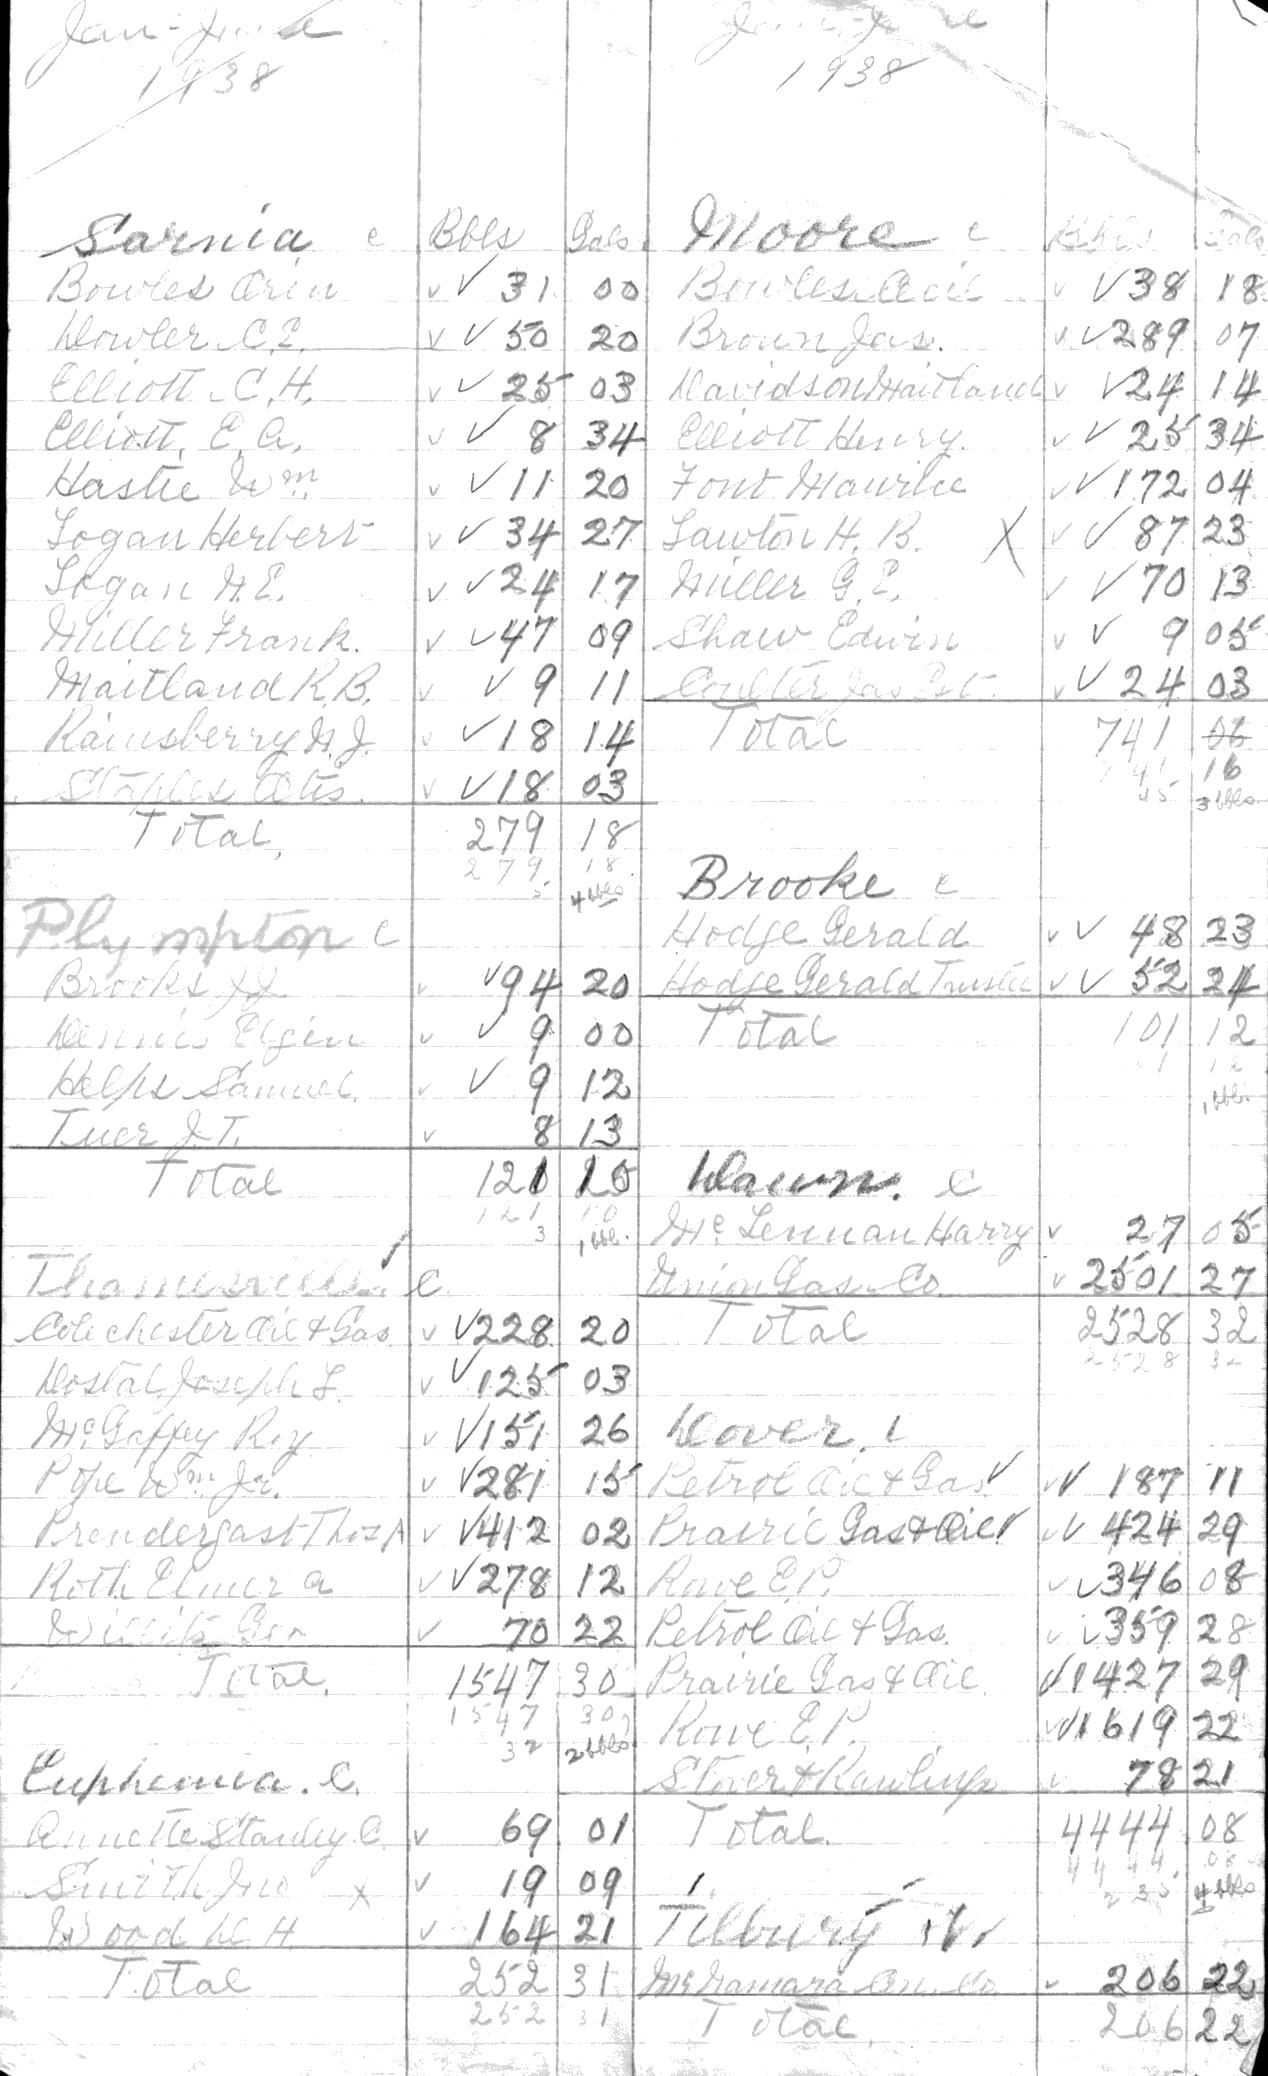 Jan-June
1938
Sarnia c Bbls Gals
Bowles Orin v ✓ 31 00
Dowler C.E. v ✓ 50 20
Elliott C.H. v ✓ 25 03
Elliott, E.A. v ✓ 8 34
Hastie Wm v ✓ 11 20
Logan Herbert v ✓ 34 27
Logan W.E. v ✓ 24 17
Miller Frank. v ✓ 47 09
Maitland R.B. v ✓ 9 11
Rainsberry W.J. v ✓ 18 14
Staples Otis. v ✓ 18 03
Total, 279 18
279 18
5 4 bbls
Plympton c
Brooks J.J. v ✓ 94 20
Dennis Elgin v ✓ 9 00
Helps Samuel. v ✓ 9 12
Tuer J.T. v 8 13
Total 121 10
121 10
3 1 bbl.
Thamesville c
Colechester Oil & Gas v ✓ 228 20
Dostal Joseph L. v ✓ 125 03
McGaffey Roy v ✓ 151 26
Pope Wm Jr. v ✓ 281 15
Prendergast Thos A v ✓ 412 02
Roth Elmer A v ✓ 278 12
Willits Geo v 70 22
Total. 1547 30
1547 30
32 2 bbls
Euphemia. C.
Annette Stanley C. v 69 01
Smith Jno x v 19 09
Wood D H v 164 21
Total 252 31
252 31
Jan-June
1938
Moore c Bbls Gals
Bowles Orin v ✓ 38 18
Brown Jas. v ✓ 289 07
Davidson Maitland v ✓ 24 14
Elliott Henry. v ✓ 25 34
Font Maurice v ✓ 172 04
Lawton H. B. X v ✓ 87 23
Miller G.E. v ✓ 70 13
Shaw Edwin v ✓ 9 05
Coulter Jas Est. v ✓ 24 03
Total 741 06
741 16
45 3 bbls
Brooke c
Hodge Gerald v ✓ 48 23
Hodge Gerald Trustee v ✓ 52 24
Total 101 12
12
1 bbl.
Dawn. c
McLennan Harry v 27 05
Union Gas Co v 2501 27
Total 2528 32
2528 32
Dover. c
Petrol Oil & Gas ✓ v ✓ 187 11
Prairie Gas & Oil ✓ v ✓ 424 29
Rowe E.P. v ✓ 346 08
Petrol Oil & Gas. v ✓ 359 28
Prairie Gas & Oil. v ✓ 1427 29
Rowe E.P. v ✓ 1619 22
Stover & Rawlings v 78 21
Total. 4444 08
4444 08
235 4 bbls
Tilbury
McNamara Oil Co v 206 22
Total, 206 22